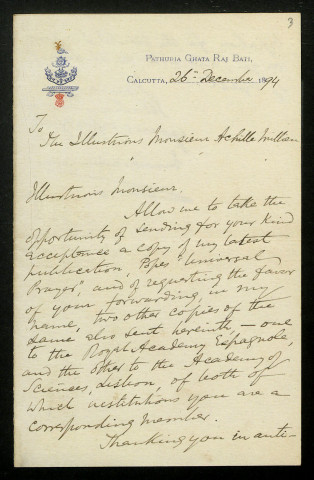 3
PATHURIA GHATA RAJ BATI,
CALCUTTA, 26th December 1894
To
The Illustrious Monsieur Achille Millien
Illustrious Monsieur,
Allow me to take the
opportunity of sending for your kind
acceptance a copy of my latest
publication, Pope's "Universal
Prayer", and of requesting the favor
of your forwarding, in my
name, two other copies of the
same also sent herewith, — one
to the Royal Academy Espagnole,
and the other to the Academy of
Sciences, Lisbon, of both of
which institutions you are a
corresponding member.
Thanking you in anti-